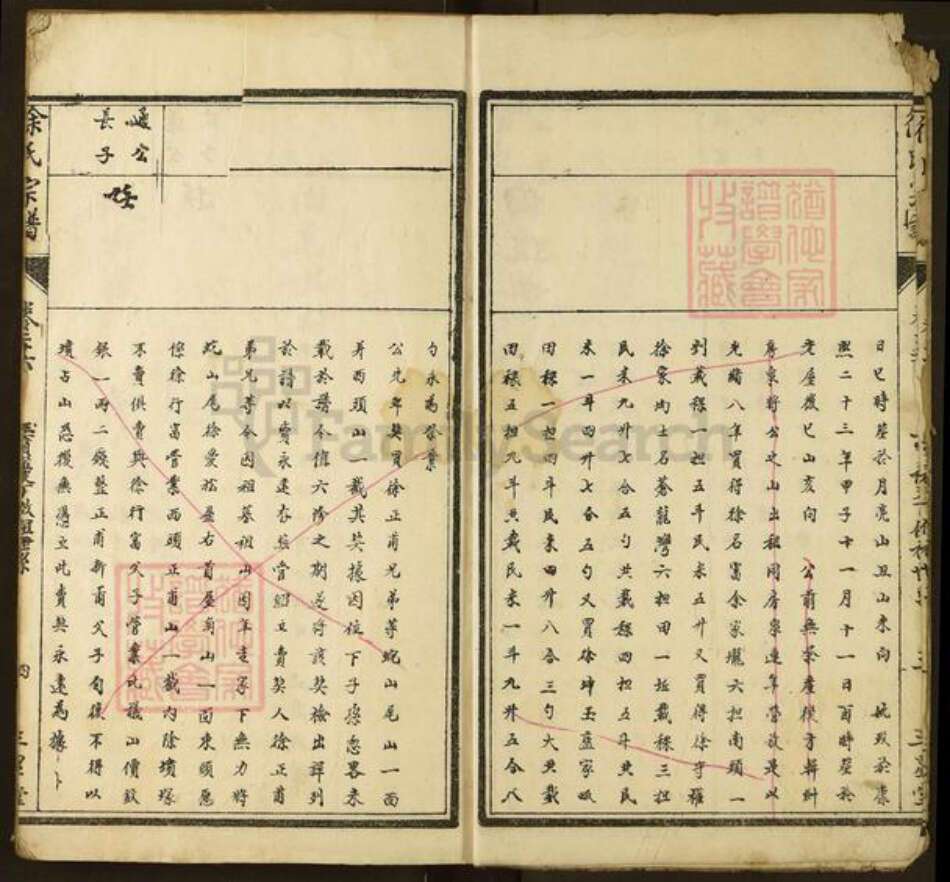 日巳時葬於月亮山丑山未向 妣歿於康
熙二十三年甲子十一月十一日酉時葬於
老屋後巳山亥向 公前無祭產後方輯糾
房眾將公之山出租同房眾連年營放是以
光緒八年買得徐名富余家壠六担南頭一
列載稞一担五斗民米五升又買得徐守羅
徐家坳土名蒼龍灣六担田一坵載稞三担
民米九升七合五勺共載稞四担五斗共民
米一斗四升七合五勺又買徐坤玉藍家
田稞一担四斗民米四升八合三勺大共載
田稞五担九斗共載民米一斗九升五合八
勺永為祭業
公光年契買徐正甫兄弟等蛇山尾山一面
并西頭山一截其契據因位下子孫忽畧未
載於譜今值六修之期爰將該契檢出詳列
於譜以寶永遠存照 立賣契人徐正甫
弟兄等今因祖墓祖山因年老家下無力將
蛇山尾徐愛松屋右首屋角山一面東頭憑
徐行富管業西頭正甫山一截內除墳塚
不賣俱賣與徐行富父子管業比議山價紋
銀一兩二錢整正甫新甫父子旬後不得以
墳占山恐後無憑立此賣契永遠為據
通公
長子
徐氏宗譜
卷之六
四
三聖堂
猶他家
譜學會
收藏
FamilySearch